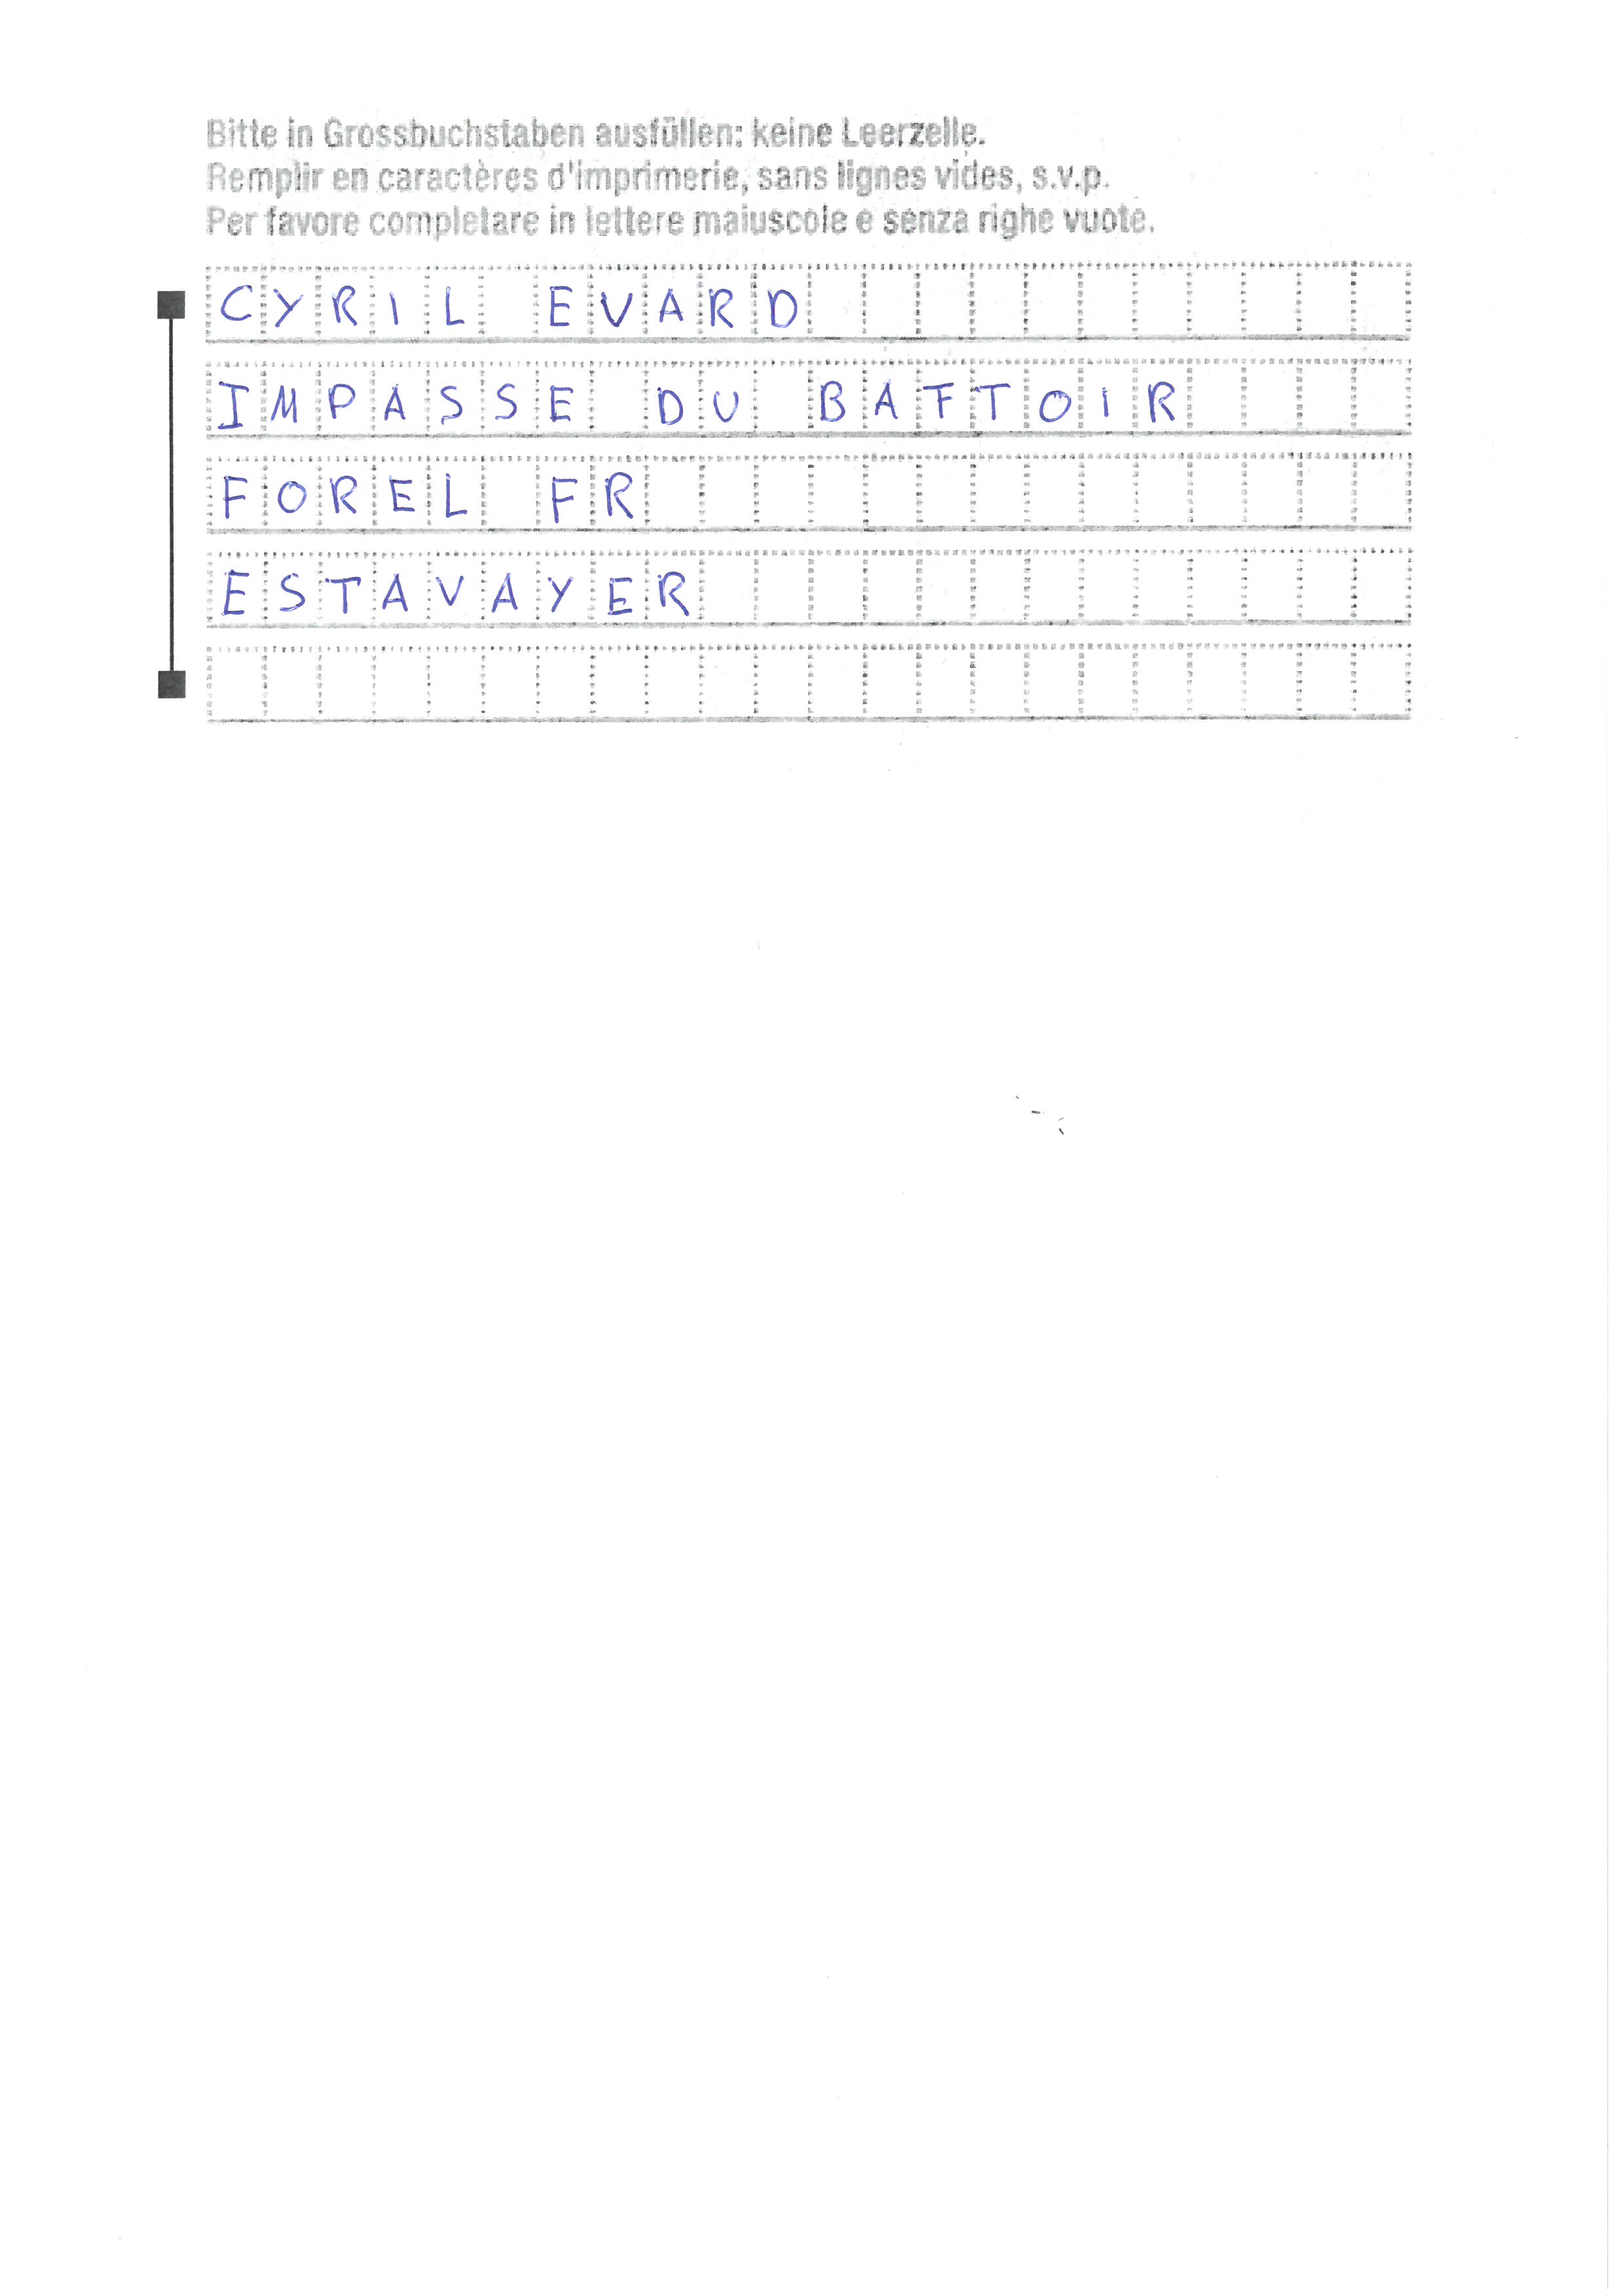 Bitte in Grossbuchstaben ausfüllen: keine Leerzelle.
Remplir en caractères d'imprimerie, sans lignes vides, s.v.p.
Per favore completare in lettere maiuscole e senza righe vuote.
CYRIL EVARD
IMPASSE DU BATTOIR
FOREL FR
ESTAVAYER